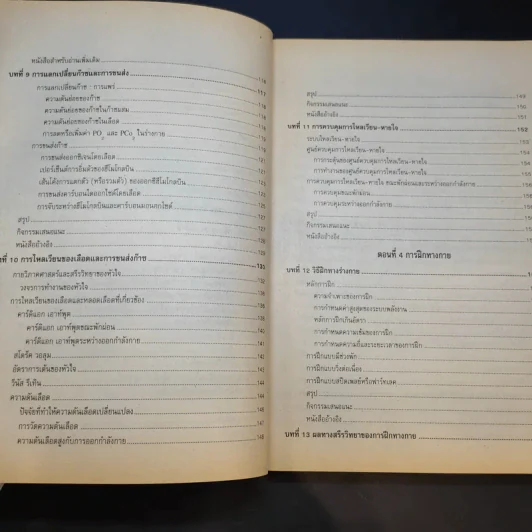 หนังสือสำหรับอ่านเพิ่มเติม
บทที่ 9 การแลกเปลี่ยนก๊าซและการขนส่ง
การแลกเปลี่ยนก๊าซ : การแพร่
ความดันย่อยของก๊าซ
ความดันย่อยของก๊าซในก๊าซผสม
ความดันย่อยของก๊าซในเลือด
การลดหรือเพิ่มค่า PO และ PCO ในร่างกาย
การขนส่งก๊าซ
การขนส่งออกซิเจนโดยเลือด
เปอร์เซ็นต์การอิ่มตัวของฮีโมโกลบิน
เส้นโค้งการแตกตัว (หรือรวมตัว) ของออกซีฮีโมโกลบิน
การขนส่งคาร์บอนไดออกไซด์โดยเลือด
การจับระหว่างฮีโมโกลบินและคาร์บอนมอนอกไซด์
สรุป
กิจกรรมเสนอแนะ
หนังสืออ้างอิง
บทที่ 10 การไหลเวียนของเลือดและการขนส่งก๊าซ 135
กายวิภาคศาสตร์และสรีรวิทยาของหัวใจ
วงจรการทำงานของหัวใจ
การไหลเวียนของเลือดและหลอดเลือดที่เกี่ยวข้อง
คาร์ดิแอก เอาท์พุต
คาร์ดิแอก เอาท์พุตขณะพักผ่อน 141
คาร์ดิแอก เอาท์พุตระหว่างออกกำลังกาย
สโตร๊ค วอลุม
อัตราการเต้นของหัวใจ
วีนัส รีเทิน 144
ความดันเลือด 144
ปัจจัยที่ทำให้ความดันเลือดเปลี่ยนแปลง 146
การวัดความดันเลือด
ความดันเลือดสูงกับการออกกำลังกาย 148
สรุป 149
กิจกรรมเสนอแนะ
หนังสืออ้างอิง 151
บทที่ 11 การควบคุมการไหลเวียน-หายใจ 152
ระบบไหลเวียน-หายใจ
ศูนย์ควบคุมการไหลเวียน-หายใจ
การกระตุ้นของศูนย์ควบคุมการไหลเวียน-หายใจ
การทำงานของศูนย์ควบคุมการไหลเวียน-หายใจ
การควบคุมการไหลเวียน-หายใจ ขณะพักผ่อนและระหว่างออกกำลังกาย
การควบคุมขณะพักผ่อน
การควบคุมระหว่างออกกำลังกาย
สรุป
กิจกรรมเสนอแนะ
หนังสืออ้างอิง
ตอนที่ 4 การฝึกทางกาย
บทที่ 12 วิธีฝึกทางร่างกาย
หลักการฝึก
ความจำเพาะของการฝึก
การกำหนดค่าสูงสุดของระบบพลังงาน
หลักการฝึกเกินอัตรา
การกำหนดความเข้มของการฝึก
การกำหนดความถี่และระยะเวลาของการฝึก
การฝึกแบบมีช่วงพัก
การฝึกแบบวิ่งต่อเนื่อง
การฝึกแบบสปีดเพลย์หรือฟาร์ทเลค
สรุป
กิจกรรมเสนอแนะ
หนังสืออ้างอิง
บทที่ 13 ผลทางสรีรวิทยาของการฝึกทางกาย